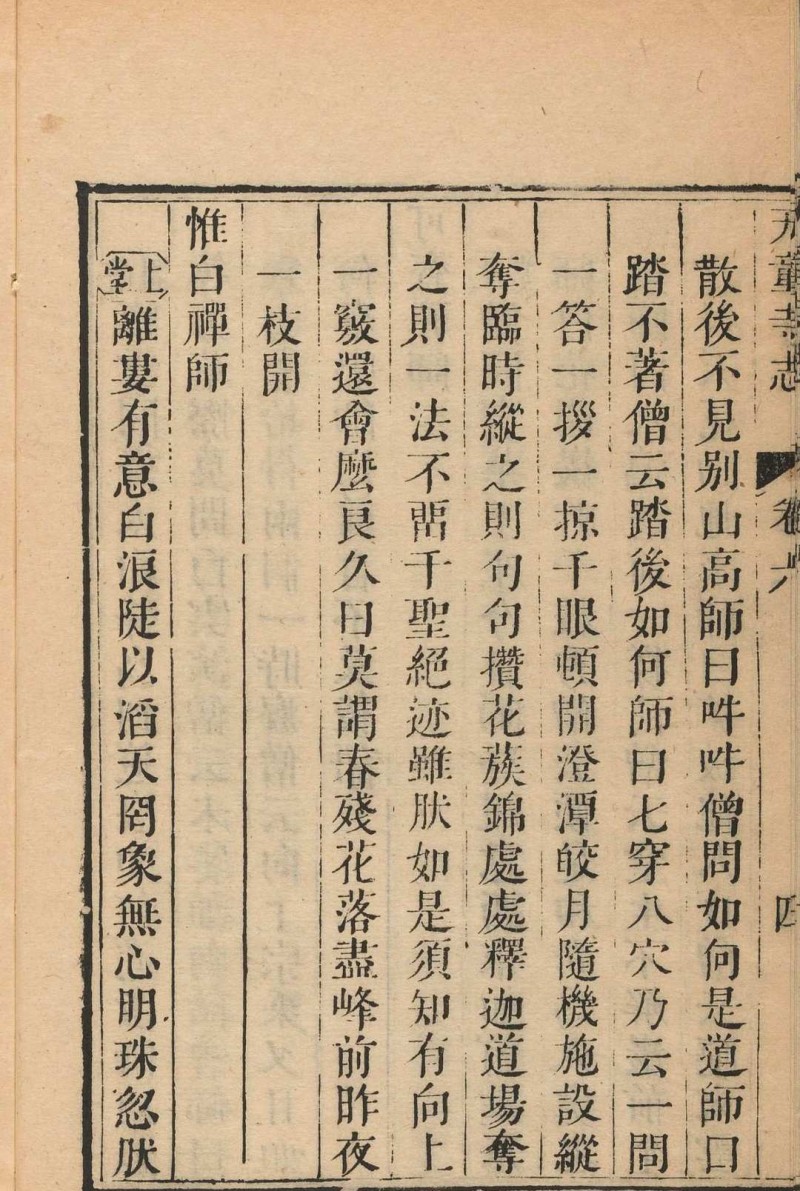 天童寺志 卷六 四
散後不見别山高師曰吽吽僧問如何是道師曰
踏不著僧云踏後如何師曰七穿八穴乃云一問
一答一拶一掠千眼頓開澄潭皎月隨機施設縱
奪臨時縱之則句句攢花蔟錦處處釋迦道場奪
之則一法不畱千聖絕迹雖肰如是須知有向上
一竅還會麼良久曰莫謂春殘花落盡峰前昨夜
一枝開
惟白禪師
上堂離婁有意白浪陡以滔天罔象無心明珠忽肰